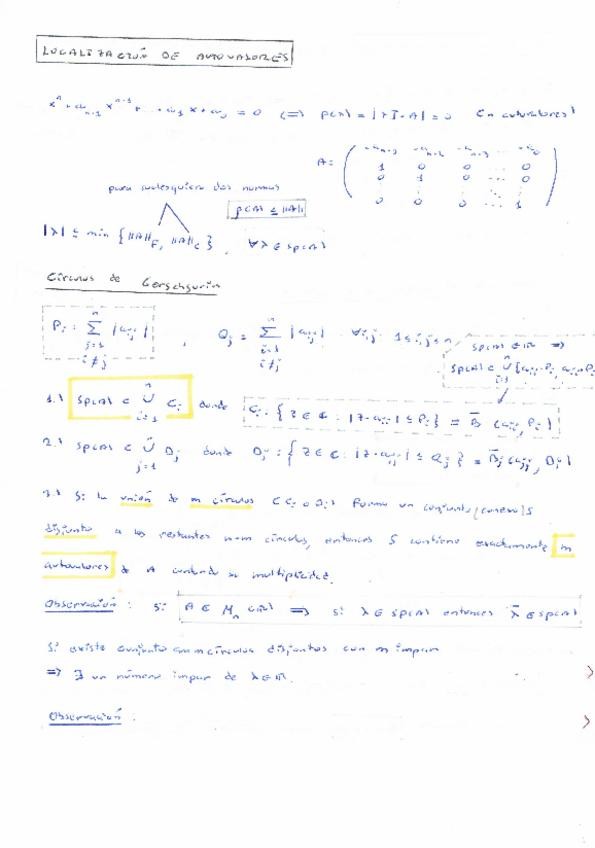 LOCALIZACIÓN DE AUTOVALORES
xⁿ + aₙ₋₁ xⁿ⁻¹ + ... + a₁ x + a₀ = 0 (=) p(λ) = |λI - A| = 0
A = ( -aₙ₋₁ -aₙ₋₂ -aₙ₋₃ ... -a₀
1 0 0 ... 0
0 1 0 ... 0
0 0 0 ... 1 )
para cualesquiera dos normas
ρ(A) ≤ ||A||
|λ| ≤ min { ||A||_F, ||A||_C }, ∀λ ∈ sp(A)
Círculos de Gerschgorin
Pᵢ = Σ_{j=1, i≠j}ⁿ |aᵢⱼ| , Qⱼ = Σ_{i=1, i≠j}ⁿ |aᵢⱼ| ∀i,j 1≤i,j≤n
sp(A) ⊂ ℝ =>
1.) sp(A) ⊂ ∪_{i=1}ⁿ Cᵢ donde Cᵢ = { z ∈ ℂ : |z - aᵢᵢ| ≤ Pᵢ } = B̄ (aᵢᵢ, Pᵢ)
2.) sp(A) ⊂ ∪_{j=1}ⁿ Dⱼ donde Dⱼ = { z ∈ ℂ : |z - aⱼⱼ| ≤ Qⱼ }
3.) Si la unión de m círculos (Cᵢ o Dᵢ) forma un conjunto (conexo) S
disjunto a los restantes n-m círculos, entonces S contiene exactamente m
autovalores de A contando su multiplicidad.
Observación: Si A ∈ Mₙ (ℝ) => si λ ∈ sp(A) entonces λ̄ ∈ sp(A)
Si existe conjunto m círculos disjuntos con m impar
=> ∃ un número impar de λ ∈ ℝ.
Observación: